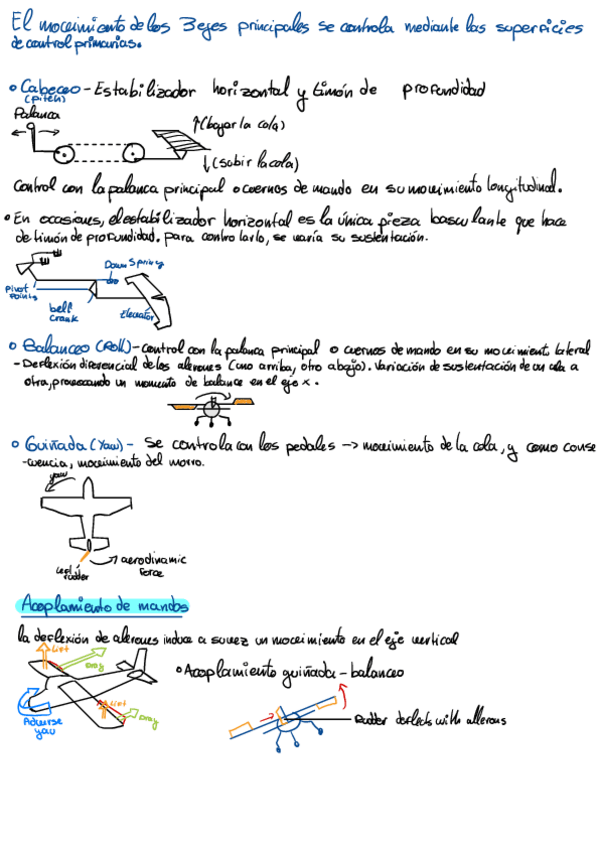 El movimiento de los 3 ejes principales se controla mediante las superficies
de control primarias.
Cabeceo - Estabilizador horizontal y timón de profundidad
(pitch)
Palanca
↑(bajar la cola)
↓(subir la cola)
Control con la palanca principal o cuernos de mando en su movimiento longitudinal.
En ocasiones, el estabilizador horizontal es la única pieza basculante que hace
de timón de profundidad. Para controlarlo, se varía su sustentación.
Down Spring
Pivot
Points
bell
crank
Elevator
Balanceo (Roll) - control con la palanca principal o cuernos de mando en su movimiento lateral
- Deflexión diferencial de los alerones (uno arriba, otro abajo). Variación de sustentación de un ala a
otra, provocando un momento de balance en el eje x.
Guiñada (Yaw) - Se controla con los pedales → movimiento de la cola, y como conse
-cuencia, movimiento del morro.
yaw
Left
rudder
aerodinamic
Force
Acoplamiento de mandos
la deflexión de alerones induce a su vez un movimiento en el eje vertical
Lift
Drag
Acoplamiento guiñada - balanceo
Lift
Drag
Adverse
yaw
Rudder deflects with ailerons